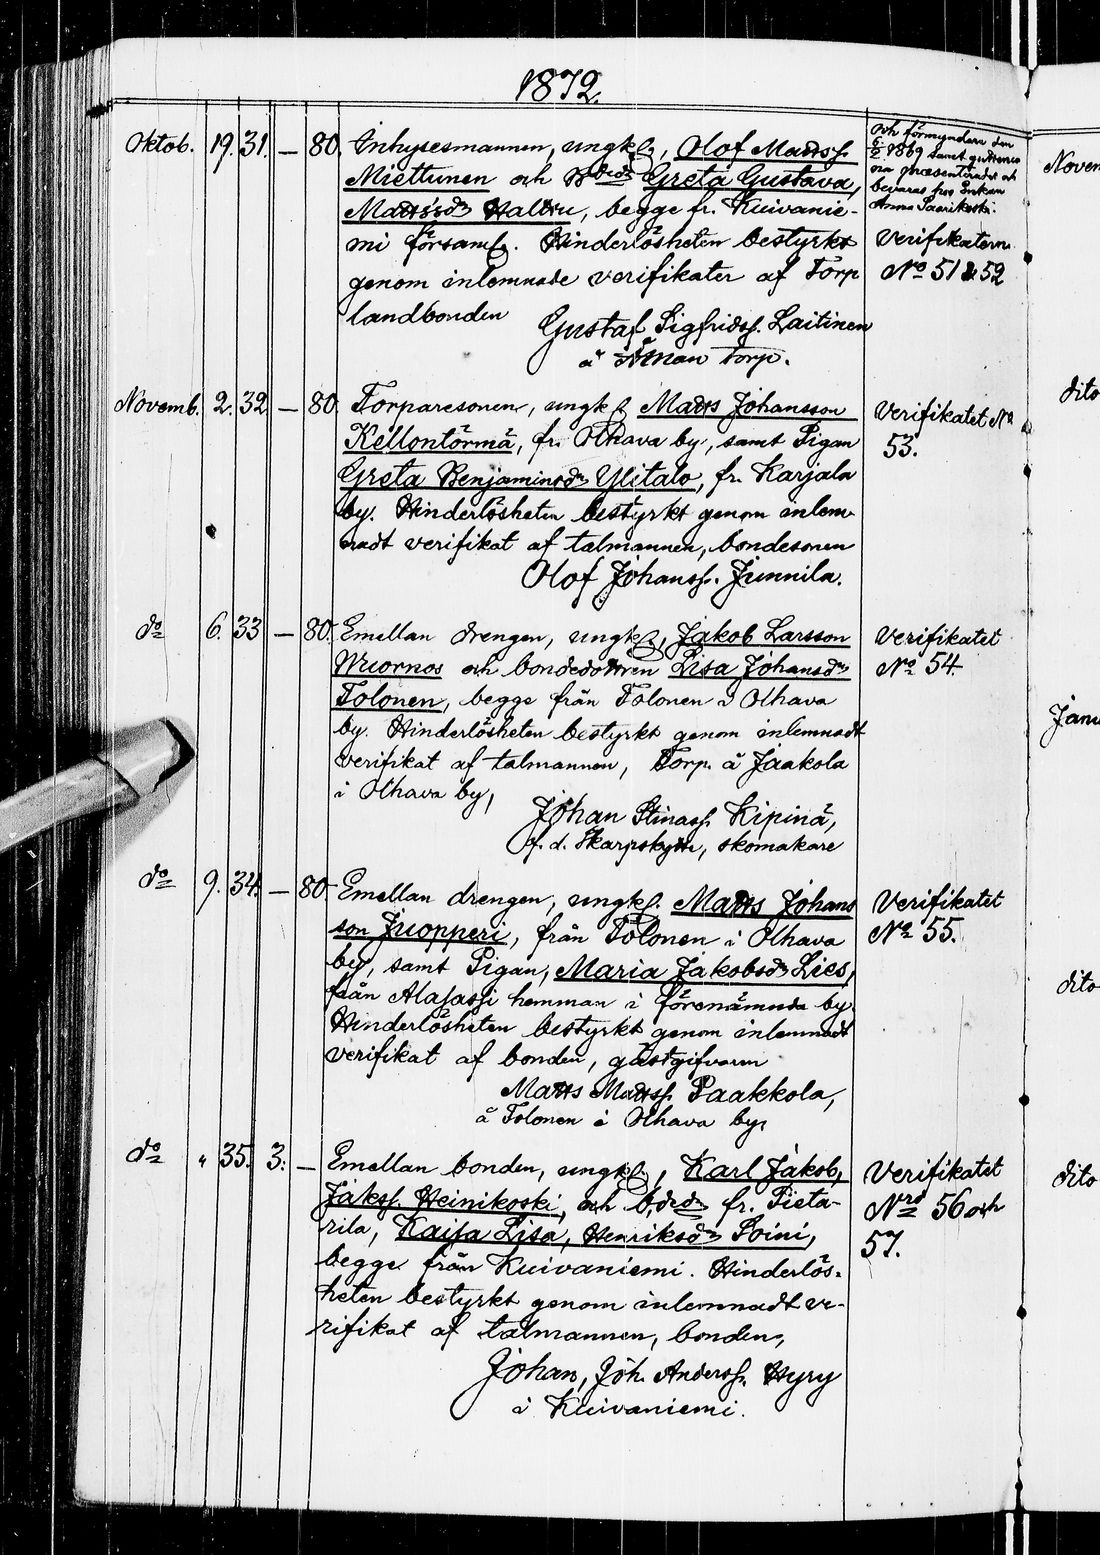 1872.
Oktob. 19. 31. — 80. Inhysesmannen, ungk., Olof Mattss.
Miettunen och Bdrdr Greta Gustava,
Mattsdr Halttu, begge fr. Kuivanie-
mi församl. Hinderlösheten bestyrkt
genom inlemnade verifikater af Torp
landbonden
Gustaf Sigfridss. Laitinen
å torp.
och förmyndern den
1869 samt
præsenteradt och
bevaras hos Enkan
Anna Saarikoski.
Verifikaterne
No 51 & 52
Novemb. 2. 32 — 80. Torparesonen, ungk. Matts Johansson
Kellontörmä, fr. Olhava by, samt Pigan
Greta Benjaminsdr Ylitalo, fr. Karjala
by. Hinderlösheten bestyrkt genom inlem-
nadt verifikat af talmannen, bondesonen
Olof Johanss. Junnila.
Verifikatet No
53.
do 6. 33 — 80. Emellan drengen, ungk., Jakob Larsson
Wuornos och bondedottren Lisa Johansdr
Tolonen, begge från Tolonen i Olhava
by. Hinderlösheten bestyrkt genom inlemnadt
verifikat af talmannen, Torp. å Jaakola
i Olhava by,
Johan Stinass. Kipinä,
f. d. Skarpskytt, skomakare
Verifikatet
No 54.
do 9. 34. — 80. Emellan drengen, ungk. Matts Johans
son Juopperi, från Tolonen i Olhava
by, samt Pigan, Maria Jakobsdr Lies,
från Alasassi hemman i förenämnda by.
Hinderlösheten bestyrkt genom inlemnadt
verifikat af bonden, gästgifvaren
Matts Mattss. Paakkola,
å Tolonen i Olhava by,
Verifikatet
No 55.
do " 35. 3. — Emellan bonden, ungk., Karl Jakob,
Jakss. Heinikoski, och b.drdr fr. Pieta-
rila, Kaisa Lisa, Henriksdr Soini,
begge från Kuivaniemi. Hinderlös-
heten bestyrkt genom inlemnadt ve-
rifikat af talmannen, bonden,
Johan, Joh. Anderss. Hyry
i Kuivaniemi.
Verifikatet
Nro 56 och
57.
Novem
dito
Janu
dito
dito